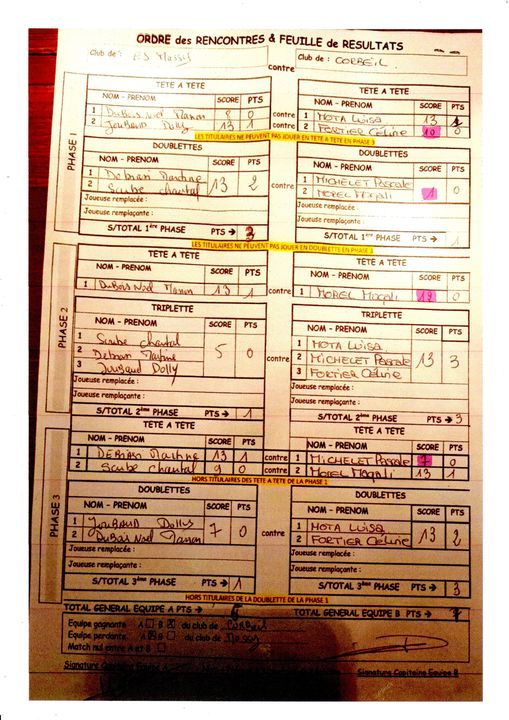 ORDRE des RENCONTRES & FEUILLE de RESULTATS
Club de : ES Massy contre Club de : CORBEIL
PHASE 1
TETE A TETE TETE A TETE
NOM - PRENOM SCORE PTS NOM - PRENOM SCORE PTS
1 DuBois Noel Manon 8 0 contre 1 MOTA Luisa 13 1
2 JouBaud Dolly 13 1 contre 2 FORTIER Céline 10 0
LES TITULAIRES NE PEUVENT PAS JOUER EN TETE A TETE EN PHASE 3
DOUBLETTES DOUBLETTES
NOM - PRENOM SCORE PTS NOM - PRENOM SCORE PTS
1 Debian Martine 13 2 contre 1 MICHELET Pascale 1 0
2 Scube chantal 2 MOREL Magali
Joueuse remplacée : Joueuse remplacée :
Joueuse remplaçante : Joueuse remplaçante :
S/TOTAL 1ère PHASE PTS → 3 S/TOTAL 1ère PHASE PTS → 1
LES TITULAIRES NE PEUVENT PAS JOUER EN DOUBLETTE EN PHASE 3
PHASE 2
TETE A TETE TETE A TETE
NOM - PRENOM SCORE PTS NOM - PRENOM SCORE PTS
1 DuBois Noel Manon 13 1 contre 1 MOREL Magali 12 0
TRIPLETTE TRIPLETTE
NOM - PRENOM SCORE PTS NOM - PRENOM SCORE PTS
1 Scube chantal 1 MOTA Luisa
2 Debian Martine 5 0 contre 2 MICHELET Pascale 13 3
3 JouBaud Dolly 3 FORTIER Céline
Joueuse remplacée : Joueuse remplacée :
Joueuse remplaçante : Joueuse remplaçante :
S/TOTAL 2ème PHASE PTS → 1 S/TOTAL 2ème PHASE PTS → 3
PHASE 3
TETE A TETE TETE A TETE
NOM - PRENOM SCORE PTS NOM - PRENOM SCORE PTS
1 DEBIAN Martine 13 1 contre 1 MICHELET Pascale 7 0
2 Scube chantal 9 0 contre 2 MOREL Magali 13 1
HORS TITULAIRES DES TETE A TETE DE LA PHASE 1
DOUBLETTES DOUBLETTES
NOM - PRENOM SCORE PTS NOM - PRENOM SCORE PTS
1 JouBAUD Dolly 7 0 contre 1 MOTA Luisa 13 2
2 DuBois Noel Manon 2 FORTIER Céline
Joueuse remplacée : Joueuse remplacée :
Joueuse remplaçante : Joueuse remplaçante :
S/TOTAL 3ème PHASE PTS → 1 S/TOTAL 3ème PHASE PTS → 3
HORS TITULAIRES DE LA DOUBLETTE DE LA PHASE 1
TOTAL GENERAL EQUIPE A PTS → TOTAL GENERAL EQUIPE B PTS → 7
Equipe gagnante A B du club de CORBEIL
Equipe perdante A B du club de Massy
Match nul entre A et B
Signature Capitaine Equipe A Signature Capitaine Equipe B